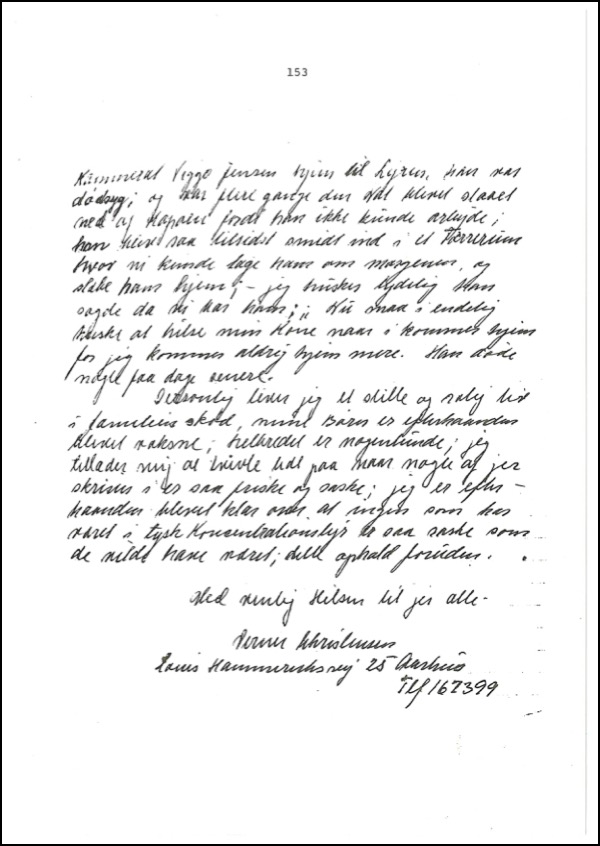 153
Kammerat Viggo Jensen hjem til Lejren, han var
dødssyg; og var flere gange den Nat blevet slaaet
ned af Kapoen fordi han ikke kunde arbejde;
han blev saa tilsidst smidt ind i et Tørrerum
hvor vi kunde tage ham om morgenen, og
slæbe ham hjem; – jeg husker tydelig han
sagde da vi bar ham; „ Nu maa i endelig
huske at hilse min Kone naar i kommer hjem
for jeg kommer aldrig hjem mere. Han døde
nogle faa dage senere.
Personlig lever jeg et stille og rolig liv
i familiens skød, mine Børn er efterhaanden
blevet voksne; helbredet er nogenlunde; jeg
tillader mig at tvivle lidt paa naar nogle af jer
skriver i er saa friske og raske; jeg er efter-
haanden blevet klar over at ingen som har
været i tysk Koncentrationslejr er saa raske som
de vilde have været; dette ophold foruden.
Med venlig Hilsen til jer alle-
Verner Christensen
Louis Hammerichsvej 25 Aarhus
Tlf 162399